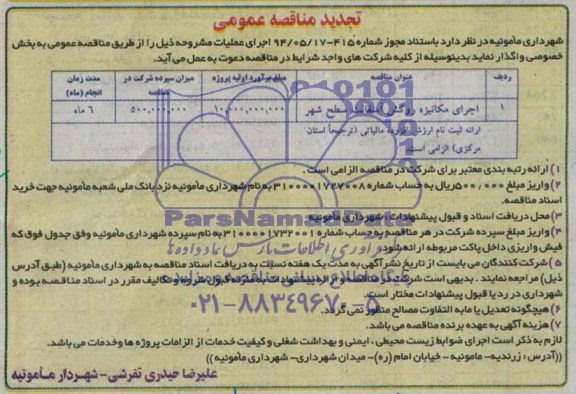 تجدید مناقصه عمومی
شهرداری مأمونیه در نظر دارد باستناد مجوز شماره ۴۱۵-۹۴/۰۵/۱۷ اجرای عملیات مشروحه ذیل را از طریق مناقصه عمومی به بخش
خصوصی واگذار نماید بدینوسیله از کلیه شرکت های واجد شرایط در مناقصه دعوت به عمل می آید.
ردیف عنوان مناقصه مبلغ برآورد اولیه پروژه میزان سپرده شرکت در مناقصه مدت زمان انجام (ماه)
۱ اجرای مکانیزه روکش آسفالت سطح شهر ۱۰,۰۰۰,۰۰۰,۰۰۰ ۵۰۰,۰۰۰,۰۰۰ ۶ ماه
ارائه ثبت نام ارزش افزوده مالیاتی (ترجیحاً استان
مرکزی) الزامی است.
۱) ارائه رتبه بندی معتبر برای شرکت در مناقصه الزامی است.
۲) واریز مبلغ ۵۰۰,۰۰۰ ریال به حساب شماره ۳۱۰۰۰۰۱۷۲۷۰۰۸ به نام شهرداری مأمونیه نزد بانک ملی شعبه مأمونیه جهت خرید
اسناد مناقصه.
۳) محل دریافت اسناد و قبول پیشنهادات: شهرداری مأمونیه
۴) واریز مبلغ سپرده شرکت در هر مناقصه به حساب شماره ۳۱۰۰۰۰۱۷۳۲۰۰۱ به نام سپرده شهرداری مأمونیه وفق جدول فوق که
فیش واریزی داخل پاکت مربوطه ارائه شود.
۵) شرکت کنندگان می بایست از تاریخ نشر آگهی به مدت یک هفته نسبت به دریافت اسناد مناقصه به شهرداری مأمونیه (طبق آدرس
ذیل) مراجعه نمایند. بدیهی است شرکت در مناقصه و ارائه پیشنهادات به منزله قبول شروط و تکالیف مقرر در اسناد مناقصه بوده و
شهرداری در رد یا قبول پیشنهادات مختار است.
۶) هیچگونه تعدیل یا مابه التفاوت مصالح منظور نمی گردد.
۷) هزینه آگهی به عهده برنده مناقصه می باشد.
لازم به ذکر است اجرای ضوابط زیست محیطی، ایمنی و بهداشت شغلی و کیفیت خدمات از الزامات پروژه ها و خدمات می باشد.
((آدرس: زرندیه- مامونیه - خیابان امام (ره)- میدان شهرداری- شهرداری مأمونیه))
علیرضا حیدری تفرشی- شهردار مأمونیه
ParsNamadData
پایگاه اطلاع رسانی مناقصه و مزایده
۰۲۱-۸۸۳۴۹۶۷۰-۵